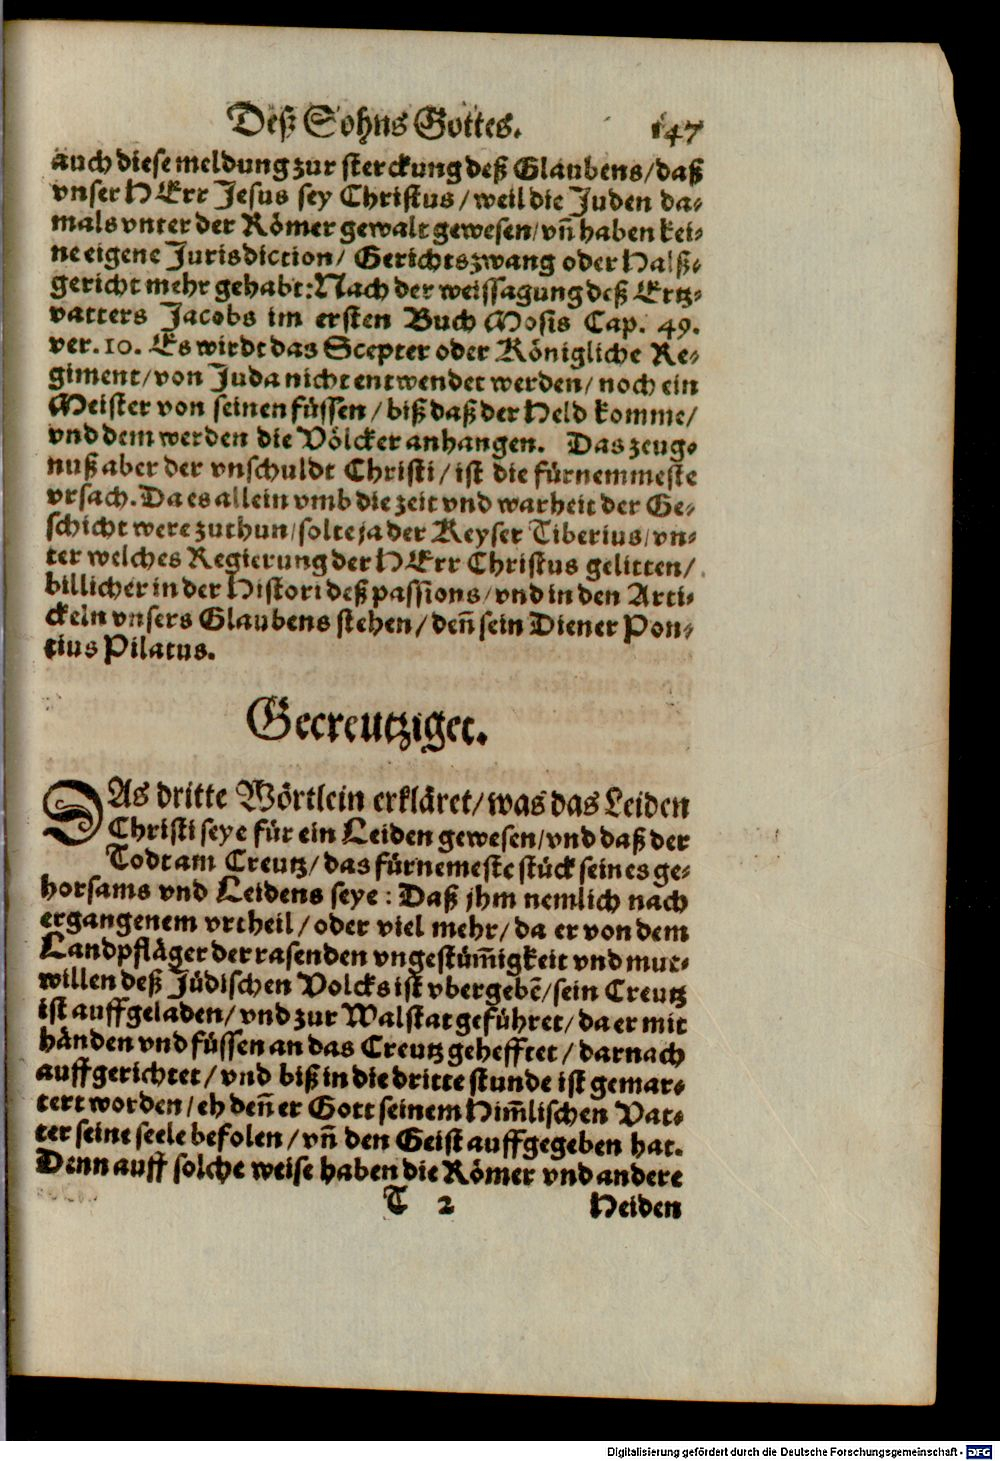 Deß Sohns Gottes. 147
auch diese meldung zur sterckung deß Glaubens/daß
vnser HErr Jesus sey Christus/weil die Juden da⸗
mals vnter der Römer gewalt gewesen/vñ haben kei⸗
ne eigene Jurisdiction/ Gerichtszwang oder Halß⸗
gericht mehr gehabt: Nach der weissagung deß Ertz⸗
vatters Jacobs im ersten Buch Mosis Cap. 49.
ver. 10. Es wirdt das Scepter oder Königliche Re⸗
giment/von Juda nicht entwendet werden/noch ein
Meister von seinen füssen/biß daß der Held komme/
vnd dem werden die Völcker anhangen. Das zeug⸗
nuß aber der vnschuldt Christi/ist die fürnemmeste
vrsach. Da es allein vmb die zeit vnd warheit der Ge⸗
schicht were zuthun/solte ja der Keyser Tiberius/vn⸗
ter welches Regierung der HErr Christus gelitten/
billicher in der Histori deß passions/vnd in den Arti⸗
ckeln vnsers Glaubens stehen/deñ sein Diener Pon⸗
tius Pilatus.
Gecreutziget.
DAs dritte Wörtlein erkläret/was das Leiden
Christi seye für ein Leiden gewesen/vnd daß der
Todt am Creutz/das fürnemeste stück seines ge⸗
horsams vnd Leidens seye: Daß jhm nemlich nach
ergangenem vrtheil/oder viel mehr/da er von dem
Landpfläger der rasenden vngestüm̃igkeit vnd mut⸗
willen deß Jüdischen Volcks ist vbergebẽ/sein Creutz
ist auffgeladen/vnd zur Walstat geführet/da er mit
händen vnd füssen an das Creutz gehefftet/darnach
auffgerichtet/vnd biß in die dritte stunde ist gemar⸗
tert worden/eh deñ er Gott seinem Him̃lischen Vat⸗
ter seine seele befolen/vñ den Geist auffgegeben hat.
Denn auff solche weise haben die Römer vnd andere
T 2 Heiden
Digitalisierung gefördert durch die Deutsche Forschungsgemeinschaft - DFG